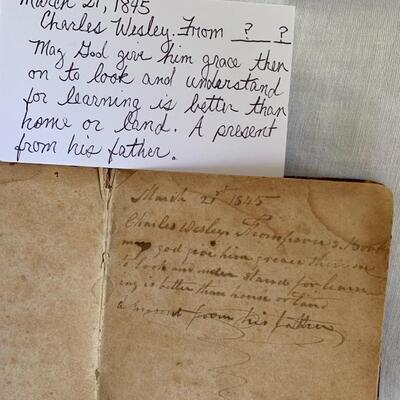 March 21, 1845
Charles Wesley. From ? ?
May God give him grace then
on to look and understand
for learning is better than
home or land. A present
from his father.
March 21st 1845
Charles Wesley Thompson's Book
may god give him greace there in
to look and under stand for learn
ing is better than house or land
a present from his father